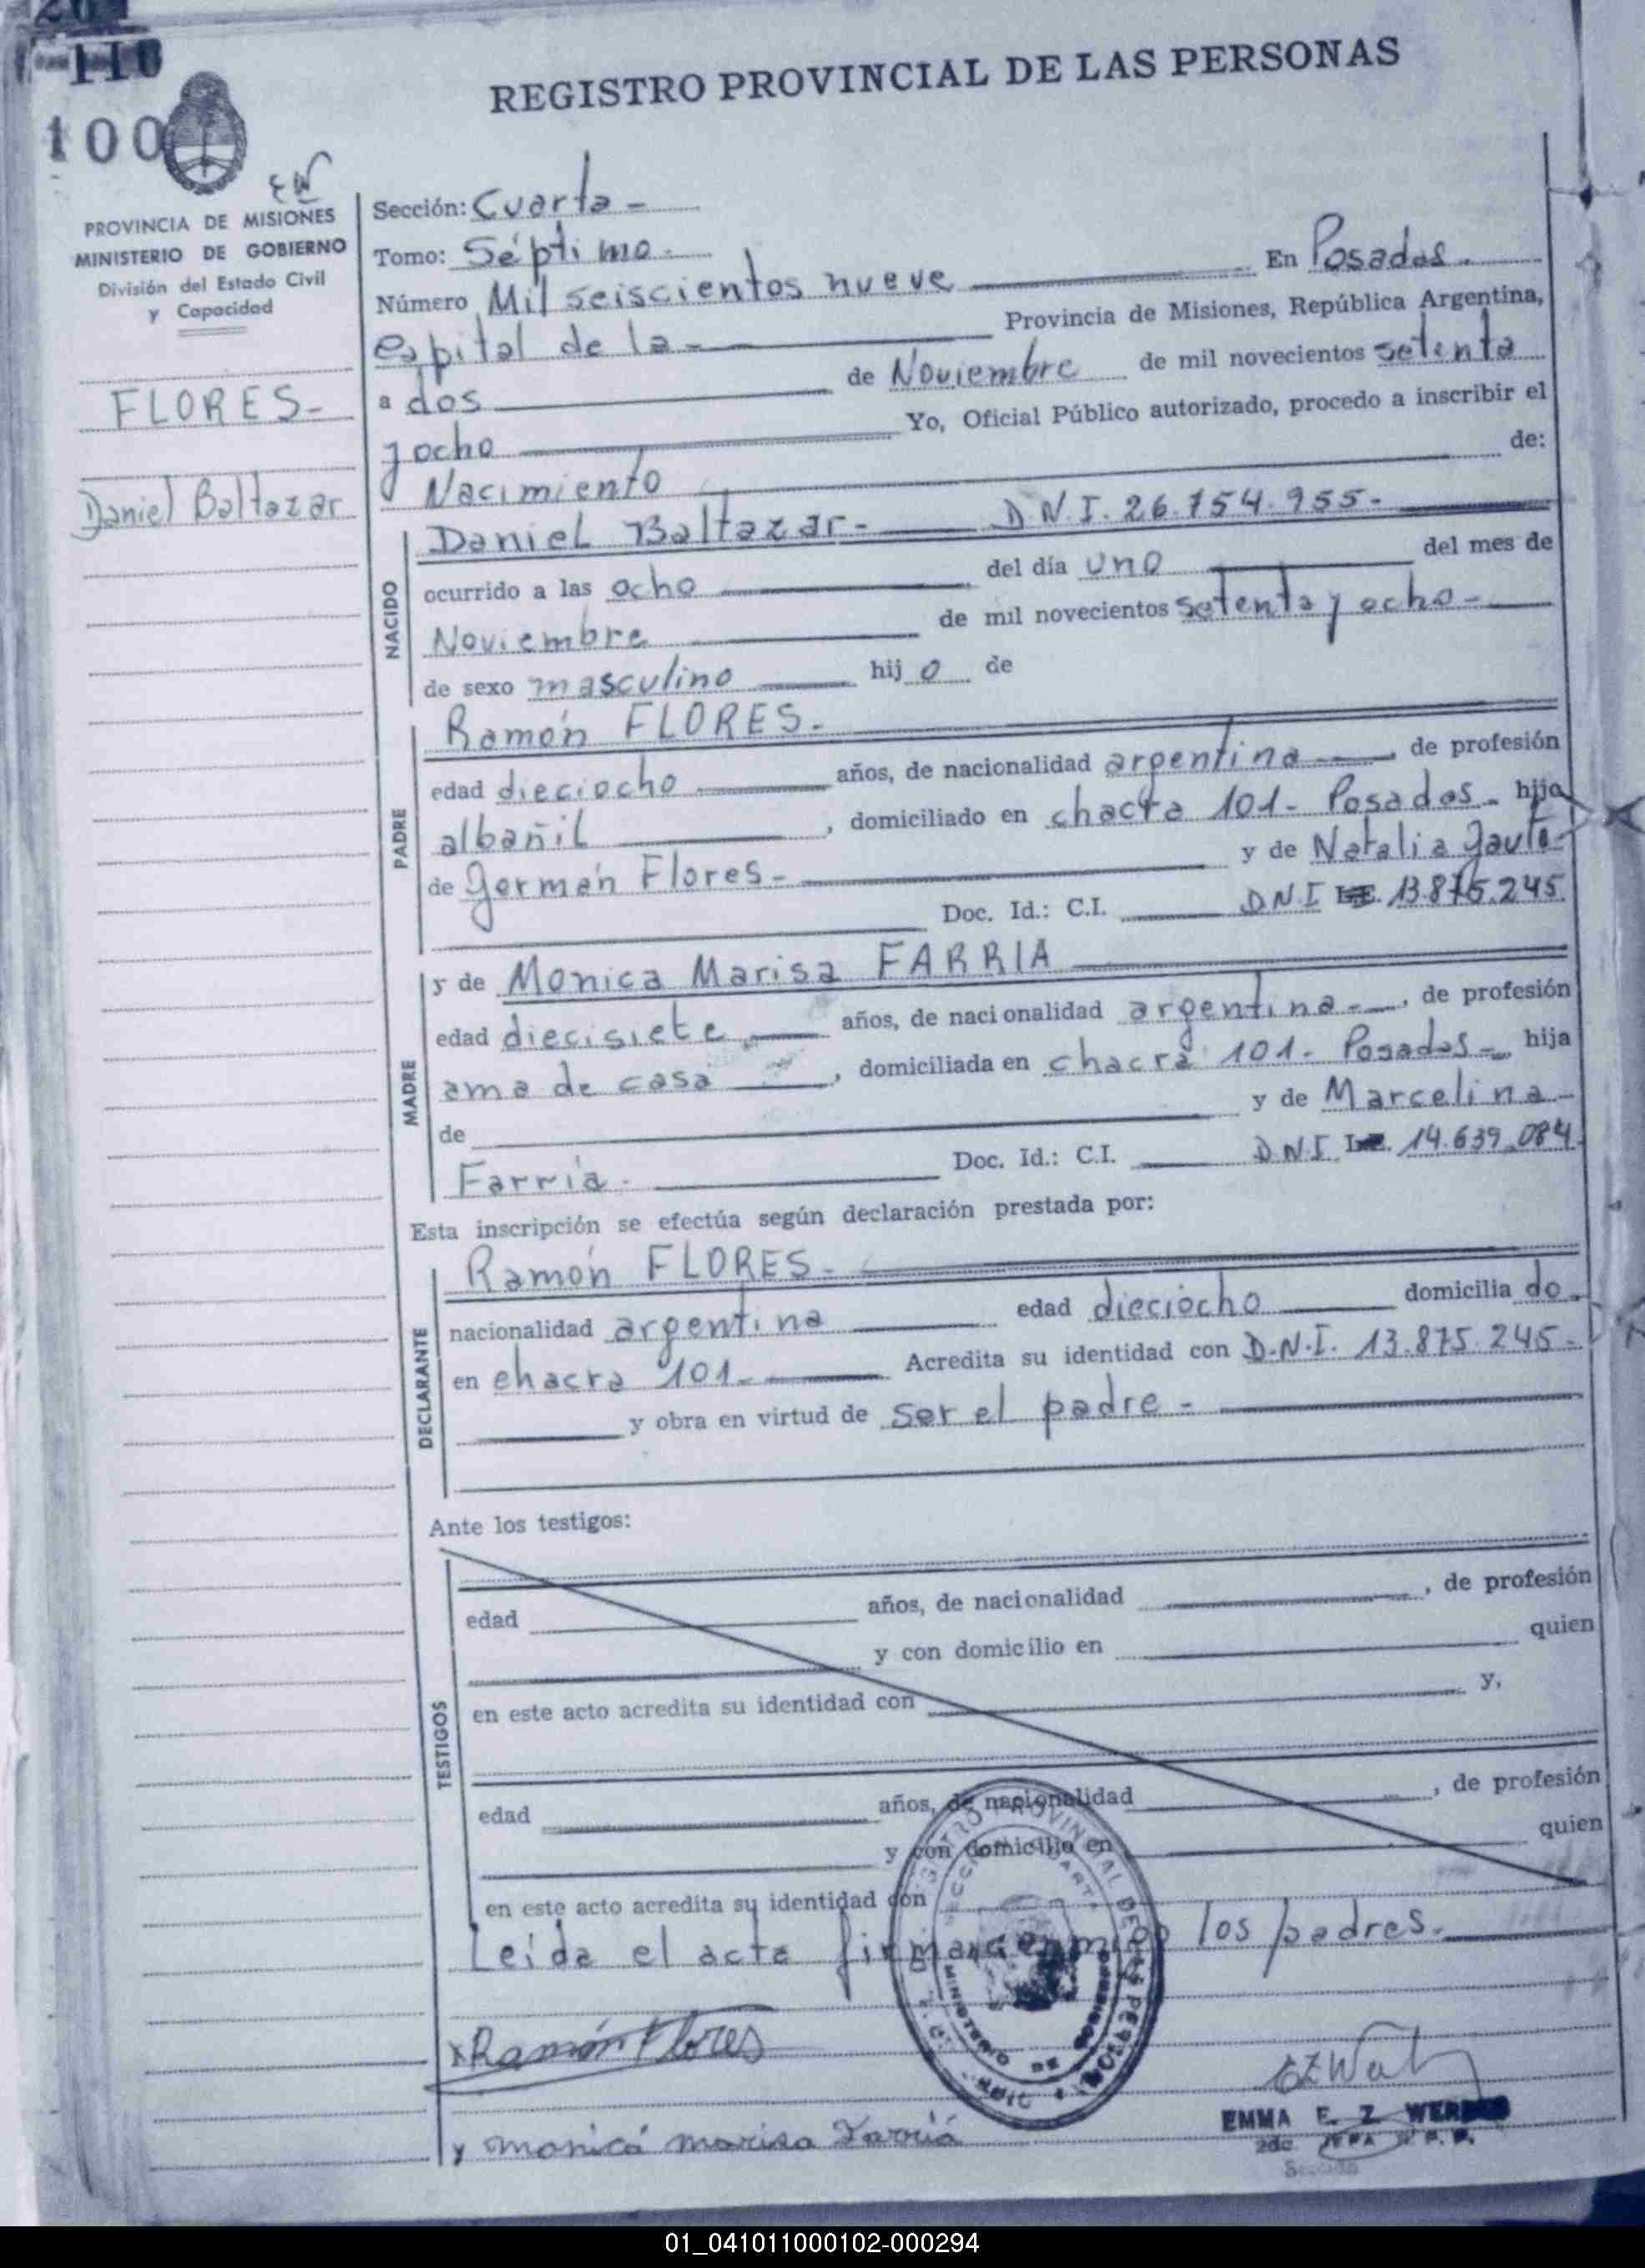 110
100
REGISTRO PROVINCIAL DE LAS PERSONAS
PROVINCIA DE MISIONES
MINISTERIO DE GOBIERNO
División del Estado Civil
y Capacidad
FLORES-
Daniel Baltazar
Sección: Cuarta -
Tomo: Séptimo.-
Número Mil seiscientos nueve En Posadas.
Capital de la - Provincia de Misiones, República Argentina,
a dos de Noviembre de mil novecientos setenta
y ocho Yo, Oficial Público autorizado, procedo a inscribir el
Nacimiento de:
NACIDO
Daniel Baltazar- D.N.I. 26.754.955-
ocurrido a las ocho del día uno del mes de
Noviembre de mil novecientos setenta y ocho-
de sexo masculino hij o de
PADRE
Ramón FLORES.-
edad dieciocho años, de nacionalidad argentina, de profesión
albañil, domiciliado en chacra 101- Posadas- hijo
de Germán Flores- y de Natalia Gauto-
Doc. Id.: C.I. D.N.I L.E. 13.875.245
MADRE
y de Monica Marisa FARRIA
edad diecisiete años, de nacionalidad argentina-, de profesión
ama de casa, domiciliada en chacra 101- Posadas- hija
de y de Marcelina-
Farria. Doc. Id.: C.I. D.N.I 14.639.084
Esta inscripción se efectúa según declaración prestada por:
DECLARANTE
Ramón FLORES-
nacionalidad argentina edad dieciocho domicilia do
en chacra 101- Acredita su identidad con D.N.I. 13.875.245-
y obra en virtud de ser el padre -
Ante los testigos:
TESTIGOS
edad años, de nacionalidad, de profesión
y con domicilio en quien
en este acto acredita su identidad con y,
edad años, de nacionalidad, de profesión
y con domicilio en quien
en este acto acredita su identidad con
Leida el acta firman los padres.
MINISTERIO DE GOBIERNO
x Ramón Flores
EMMA E. Z.
y monica marisa Farria
Sección
01_041011000102-000294